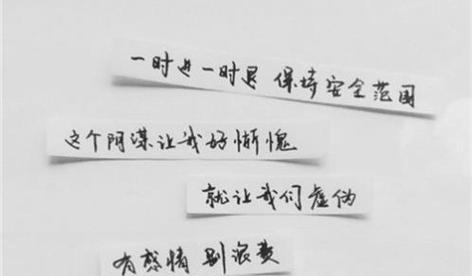 一时进一时退 保持安全范围
这个阴谋让我好惭愧
就让我们虚伪
有感情 别浪费